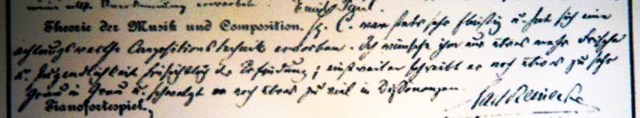 Anerkennung erworben Emil Paul.
Theorie der Musik und Composition. Hr. C. war stets sehr fleißig u. hat sich eine
achtungswerthe Compositionstechnik erworben. Ich wünsche ihm nur etwas mehr Frische
u. Jugendlichkeit hinsichtlich der Erfindung; einstweilen schreibt er noch etwas zu sehr
Grau in Grau u. schwelgt er noch etwas zu viel in Dissonanzen.
Pianofortespiel. Carl Reinecke